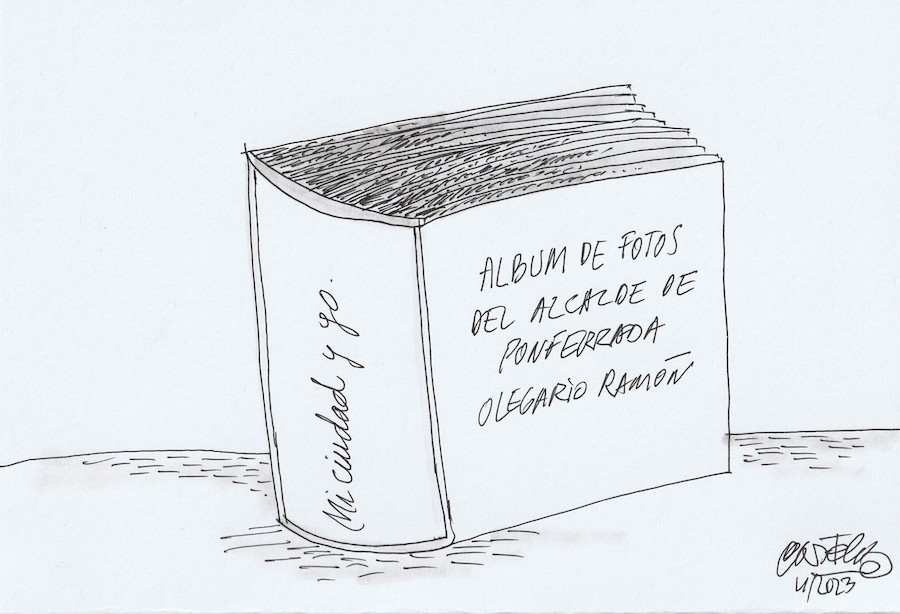 Mi ciudad y yo.
ALBUM DE FOTOS
DEL ALCALDE DE
PONFERRADA
OLEGARIO RAMÓN